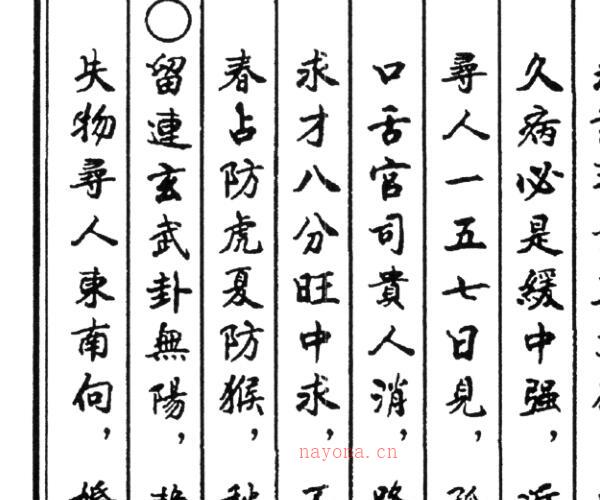 久病必是緩中强，
尋人一五七日見，
口舌官司貴人消，
求才八分旺中求，
春占防虎夏防猴，
○留連玄武卦無陽，
失物尋人東南向，
nayona.cn